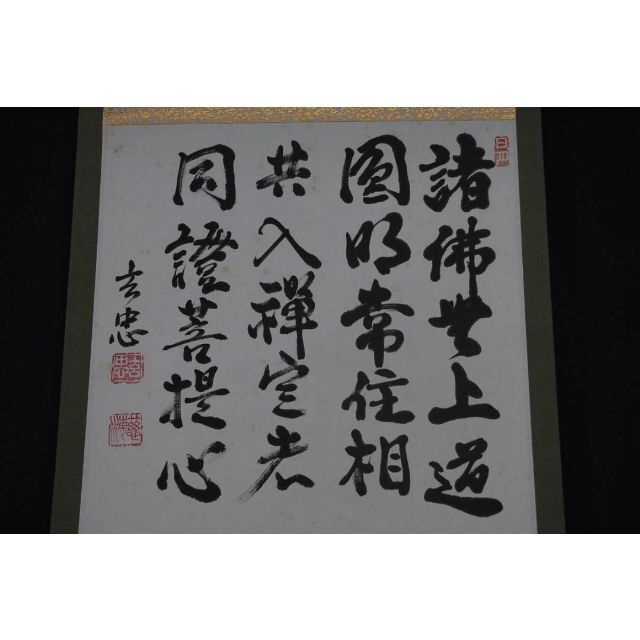 諸佛無上道
圓明常住相
共入禪定者
同證菩提心
忠